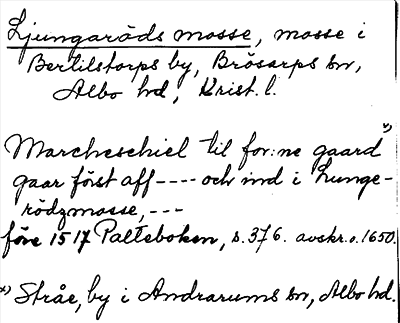 Ljungaröds mosse, mosse i
Bertilstorps by, Brösarps sn,
Albo hd, Krist. l.
x)
Marcheschiel til for:ne gaard
gaar först aff ---- och ind i Lunge-
rödzmosse, ---
före 1517 Palteboken, s. 376. avskr. o. 1650.
x) Stråe, by i Andrarums sn, Albo hd.